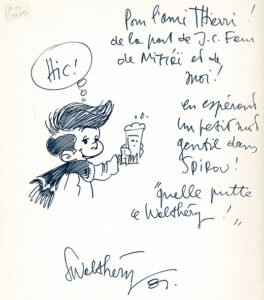 Hic!
Pour l'ami Thierri!
de la part de J.C.
de et de
moi!
en espérant
un petit mot
gentil dans
SPIROU!
"quelle putte
ce Walthéry!"
Walthéry